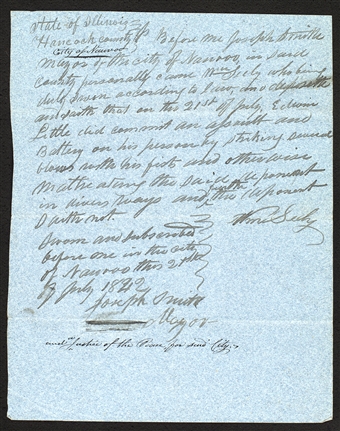 State of Illinois
Hancock county
City of Nauvoo
Before me Joseph Smith
Mayor of the city of Nauvoo, in said
county personally came Wm Seely who being
duly sworn according to law, and deposeth
and saith that on the 21st of July, Edwin
Little did commit an assault and
Battery on his person by striking several
blows with his fist and otherwise
the said deponent
in divers ways and further this deponent
Saith not.
Wm Seely
Sworn and subscribed
before me in the city
of Nauvoo this 21st
of July 1842
Joseph Smith
Mayor
and Justice of the Peace for said City.